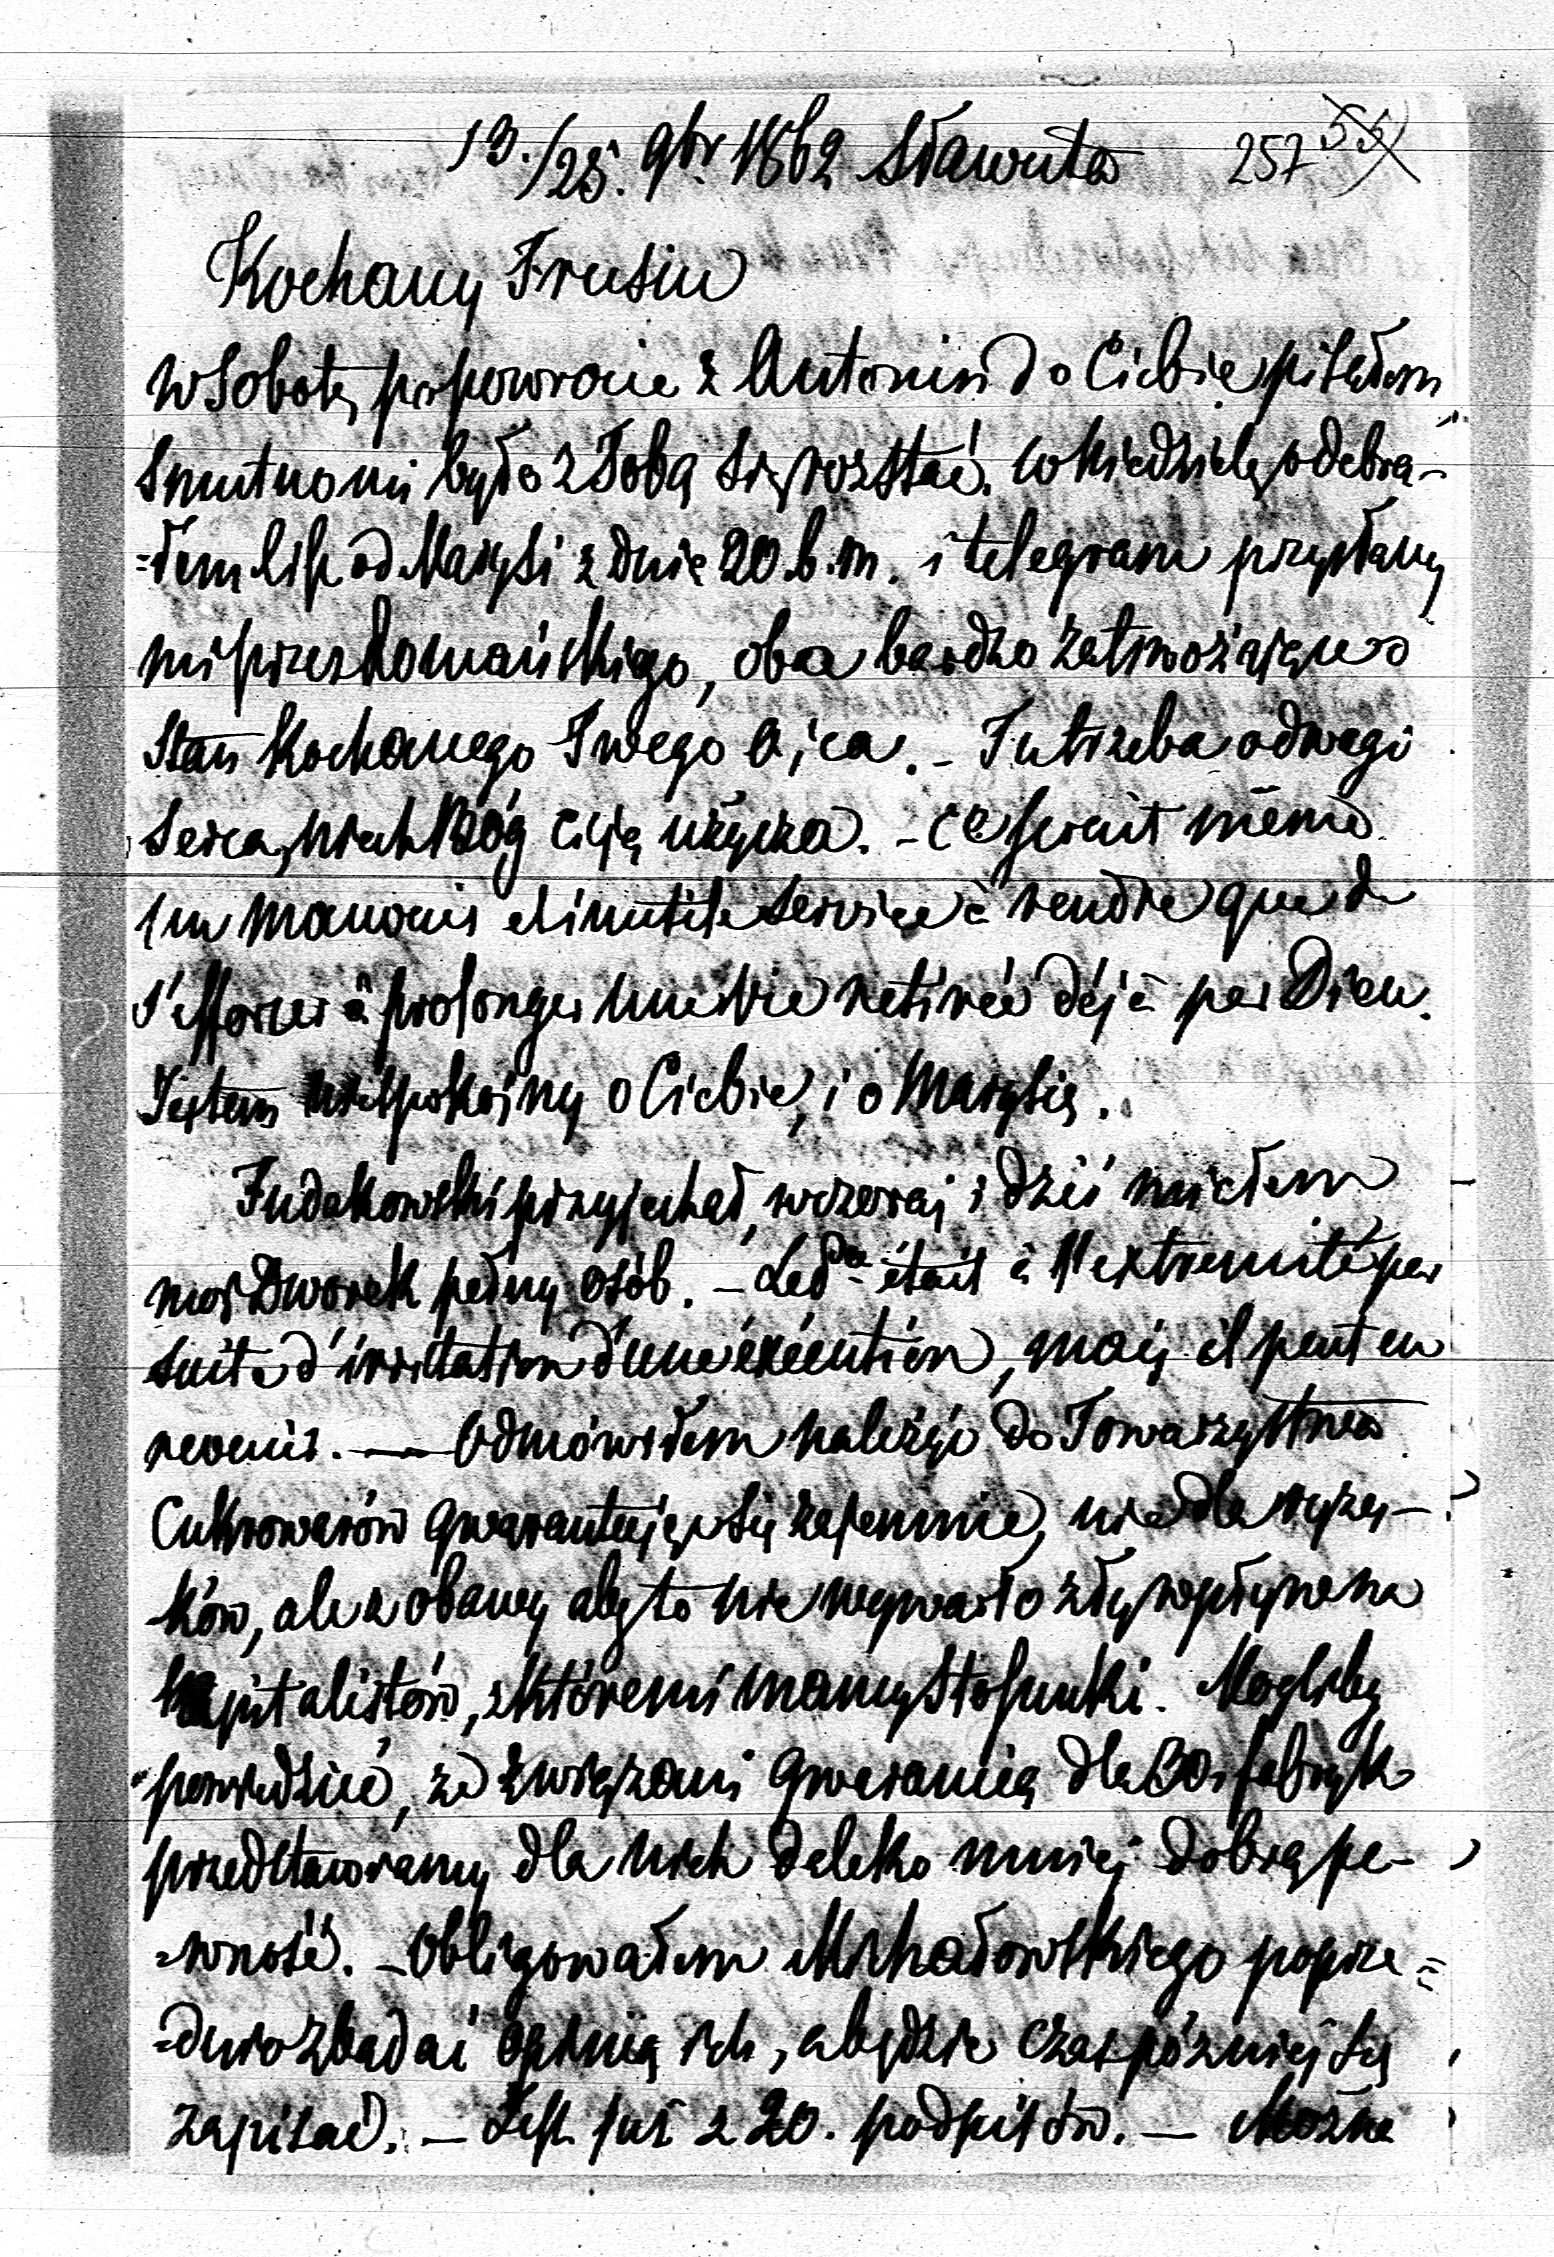 13./25. 9br. 1862 Sławuta 257
Kochany Frusiu
w Sobotę po powrocie z Antonin do Ciebie pisałem
Smutno mi było z Tobą się rozstać. W Niedzielę odebra-
=łem list od Marysi z dnia 20. b. m. i telegram przysłany
mi przez Romańskiego, oba bardzo zatrważające o
Stan Kochanego Twego Ojca. - Tu trzeba odwagi
Serca, niech Bóg Ci ją użycza. - Ce serait même
un mauvais et inutile service à rendre que de
s'efforcer à prolonger une vie retirée déjà par Dieu.
Jestem niespokojny o Ciebie, i o Marysię.
Judakowski przyjechał wczoraj i dziś miałem
mój Dworek pełny osób. - Led était à l'extremité par
suite d'irritation d'une éxécution, mais il peut en
revenir. — Odmówiłem należeć do Towarzystwa
Cukrowarów gwarantując się zajemnie, nie dla ryzy-
ków, ale z obawy aby to nie wywarło zły wpływ na
kapitalistów, z któremi mamy stosunki. Mogliby
powiedzieć, że związani gwarancią dla 30. fabryk
przedstawiamy dla nich daleko mniej dobrą pe-
=wność. - Obligowałem Michałowskiego poprze=
=dnio zbadać opinią ich, a będzie czas później się
zapisać. — Jest już z 20. podpisów. — Można